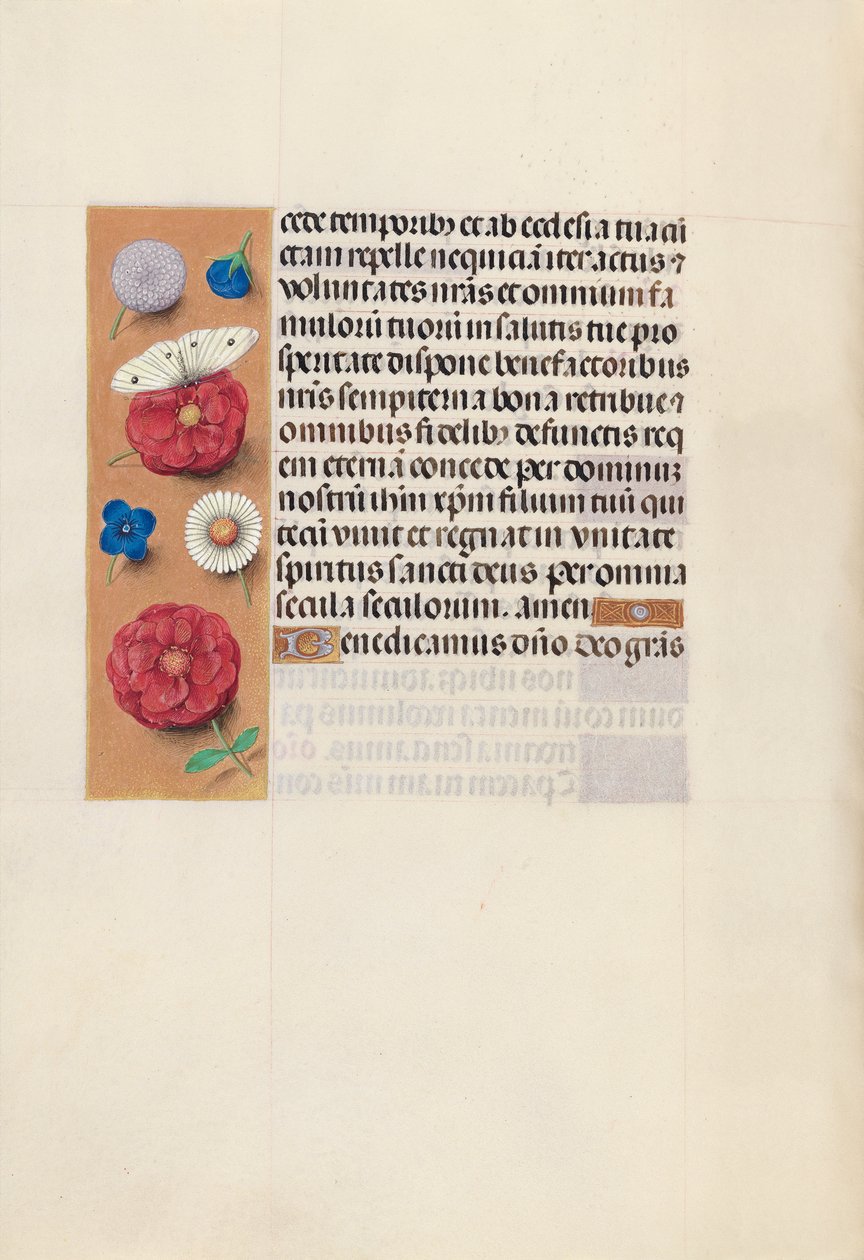 cede temporibꝫ et ab ecclesia tua cū
ctam repelle nequiciā iter actus ⁊
voluntates nr̄as et omnium fa
mulorū tuorū in salutis tue pro
speritate dispone benefactoribus
nr̄is sempiterna bona retribue ⁊
omnibus fidelibꝫ defunctis req
em eternā concede per dominuꝫ
nostrū ihm̄ xp̄m filium tuū qui
tecū viuit et regnat in vnitate
spiritus sancti deus per omnia
secula seculorum. amen
Benedicamus dn̄o deo grās